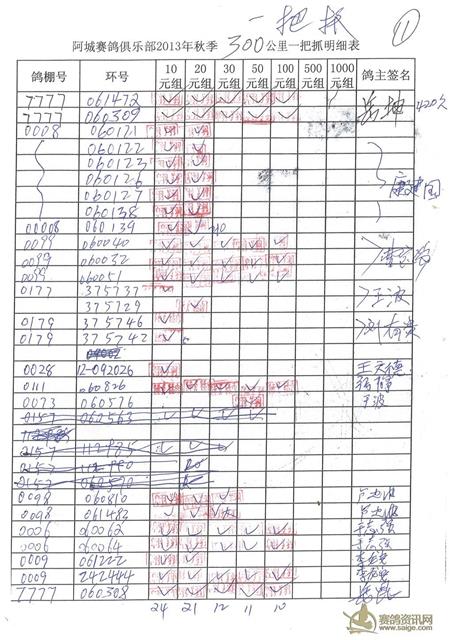 一把抓
①
阿城赛鸽俱乐部2013年秋季 300公里一把抓明细表
鸽棚号 环号 10元组 20元组 30元组 50元组 100元组 500元组 1000元组 鸽主签名
7777 061472 ✓ ✓ ✓ ✓ ✓ 岳坤
7777 060309 ✓ ✓ ✓ ✓ ✓
0008 060121 ✓ ✓
060122 ✓ ✓
060123 ✓ ✓
060126 ✓ ✓
060127 ✓ ✓
060138 ✓ ✓
00008 060139 ✓ ✓
0099 060040 ✓ ✓ ✓ ✓ ✓
0099 060032 ✓ ✓ ✓ ✓ ✓
0099 060051 ✓ ✓ ✓ ✓ ✓
0177 375737 ✓ 王波
375729 ✓
0179 375746 ✓
0179 375742 ✓
0028 12-092026 ✓ 王天德
0111 060826 ✓ ✓ ✓ ✓ ✓
0073 060576 王波
0157 062563 ✓ ✓ ✓ ✓
2157 112985 ✓ ✓
2157 112990
2157 060570
0098 060810 ✓ ✓ ✓
0098 061482 ✓ ✓
0006 060062 ✓ ✓ ✓ ✓ ✓ 于志强
0006 060064 ✓ ✓ ✓ ✓ ✓ 于志强
0009 061222 ✓ ✓
0009 242444 ✓ ✓ ✓ ✓ ✓
7777 060308 ✓ ✓ ✓ ✓ ✓ 岳昆
24 21 12 11 10
赛鸽资讯网
www.saige.com